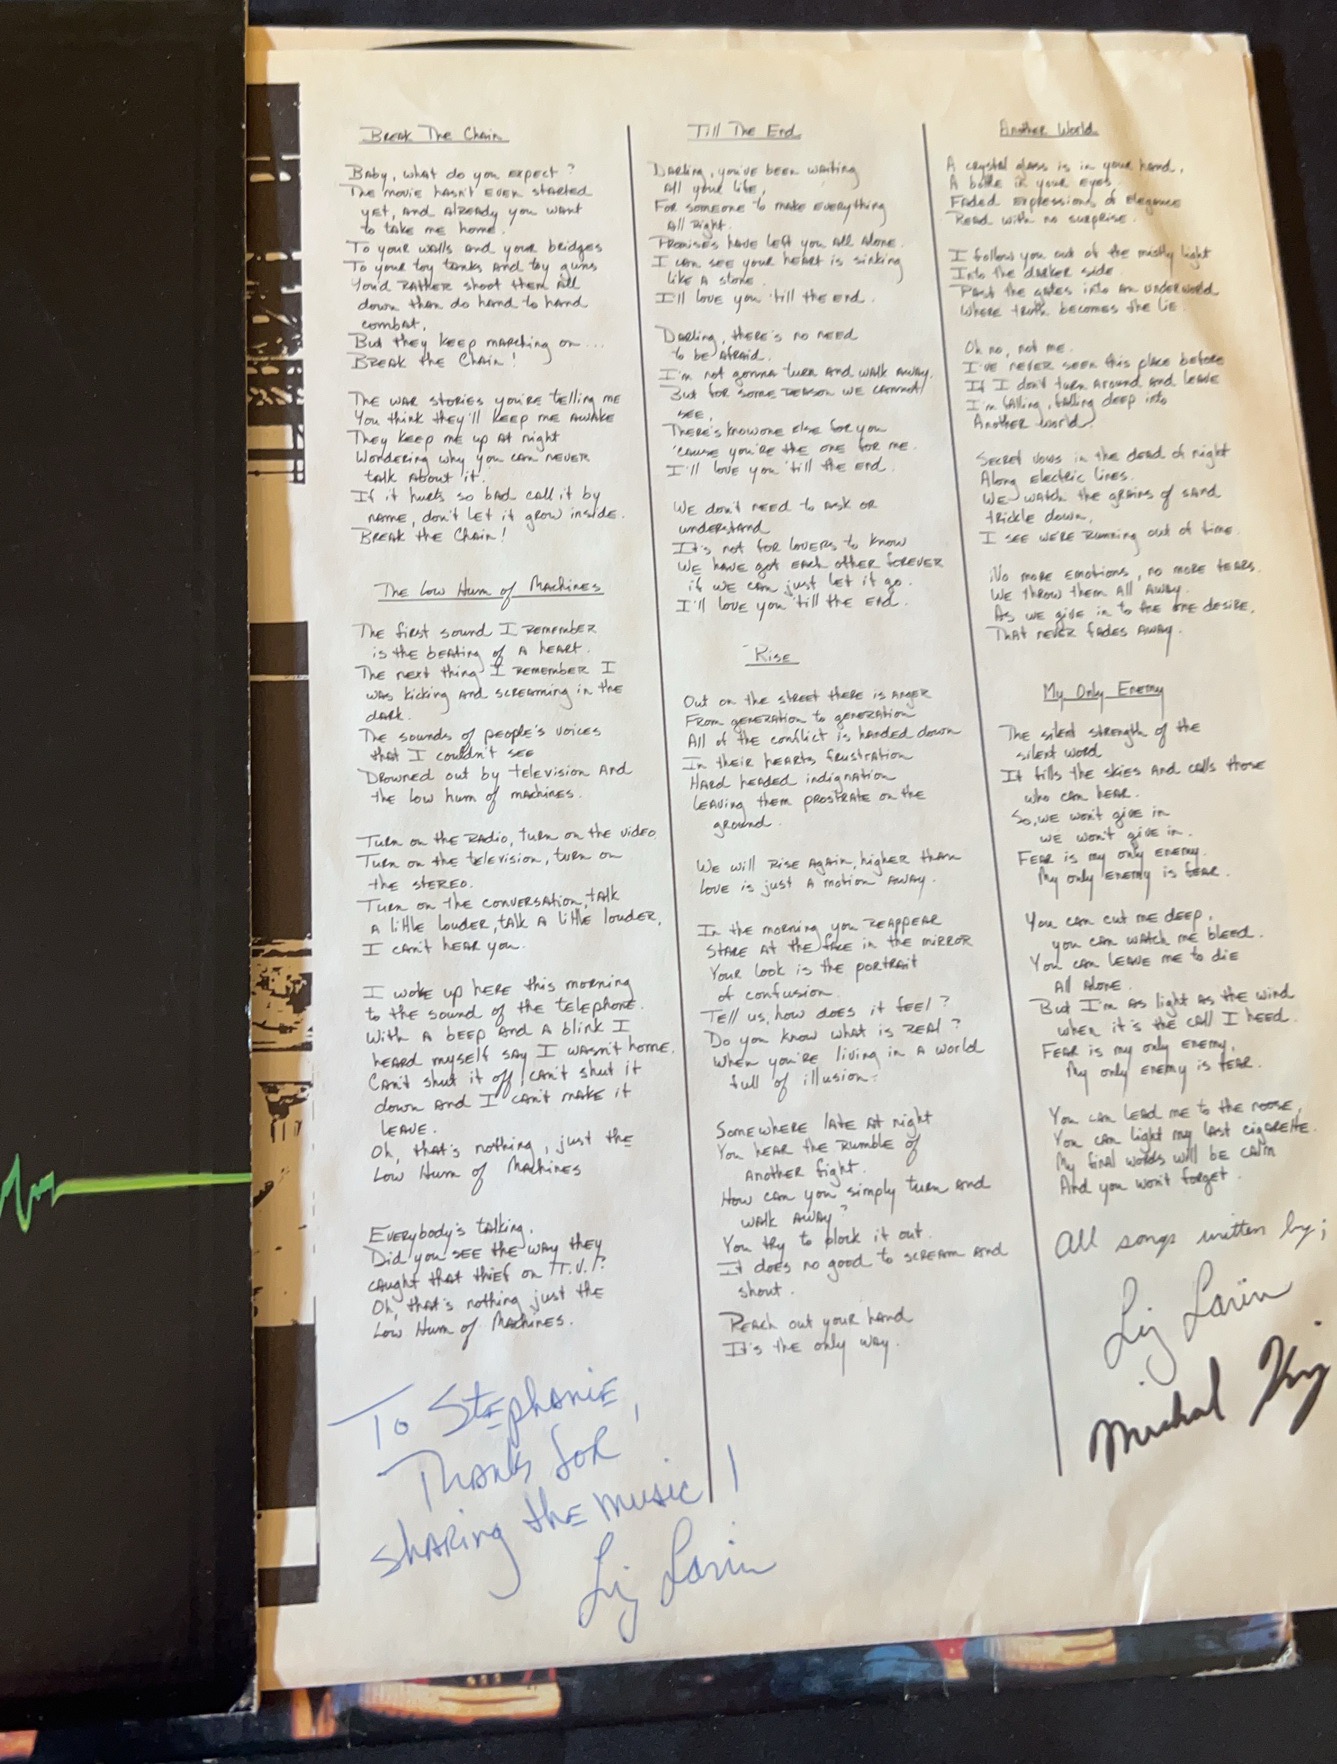 Break The Chain
Baby, what do you expect?
The movie hasn't even started
yet, and already you want
to take me home.
To your walls and your bridges
To your toy tanks and toy guns
You'd rather shoot them all
down than do hand to hand
combat,
But they keep marching on...
Break the Chain!
The war stories you're telling me
You think they'll keep me awake
They keep me up at night
Wondering why you can never
talk about it.
If it hurts so bad call it by
name, don't let it grow inside.
Break the Chain!
The Low Hum of Machines
The first sound I remember
is the beating of a heart.
The next thing I remember I
was kicking and screaming in the
dark.
The sounds of people's voices
that I couldn't see
Drowned out by television and
the low hum of machines.
Turn on the radio, turn on the video
Turn on the television, turn on
the stereo.
Turn on the conversation, talk
a little louder, talk a little louder,
I can't hear you.
I woke up here this morning
to the sound of the telephone.
With a beep and a blink I
heard myself say I wasn't home.
Can't shut it off, can't shut it
down and I can't make it
leave.
Oh, that's nothing, just the
Low Hum of Machines
Everybody's talking.
Did you see the way they
caught that thief on T.V.?
Oh, that's nothing just the
Low Hum of Machines.
To Stephanie,
Thanks for
sharing the music!
Liz Larin
Till The End
Darling, you've been waiting
all your life,
For someone to make everything
all right.
Promises have left you all alone.
I can see your heart is sinking
like a stone.
I'll love you 'till the end.
Darling, there's no need
to be afraid.
I'm not gonna turn and walk away.
But for some reason we cannot
see,
There's knowone else for you
'cause you're the one for me.
I'll love you 'till the end.
We don't need to ask or
understand
It's not for lovers to know
We have got each other forever
if we can just let it go.
I'll love you 'till the end.
Rise
Out on the street there is anger
From generation to generation
All of the conflict is handed down
In their hearts frustration
Hard headed indignation
Leaving them prostrate on the
ground.
We will rise again, higher than
Love is just a motion away.
In the morning you reappear
Stare at the face in the mirror
Your look is the portrait
of confusion.
Tell us, how does it feel?
Do you know what is real?
When you're living in a world
full of illusion.
Somewhere late at night
You hear the rumble of
another fight.
How can you simply turn and
walk away?
You try to block it out.
It does no good to scream and
shout.
Reach out your hand
It's the only way.
Another World
A crystal glass is in your hand,
A bottle in your eyes.
Faded expressions of elegance
Read with no surprise.
I follow you out of the misty light
Into the darker side
Past the gates into an underworld
Where truth becomes the lie.
Oh no, not me.
I've never seen this place before
If I don't turn around and leave
I'm falling, falling deep into
Another world.
Secret vows in the dead of night
Along electric lines.
We watch the grains of sand
trickle down,
I see we're running out of time.
No more emotions, no more tears.
We throw them all away.
As we give in to the one desire,
That never fades away.
My Only Enemy
The silent strength of the
silent word
It fills the skies and calls those
who can hear.
So, we won't give in
we won't give in.
Fear is my only enemy.
My only enemy is fear.
You can cut me deep,
you can watch me bleed.
You can leave me to die
all alone.
But I'm as light as the wind
when it's the call I heed.
Fear is my only enemy,
My only enemy is fear.
You can lead me to the noose,
You can light my last cigarette.
My final words will be calm
And you won't forget.
All songs written by;
Liz Larin
Michael King